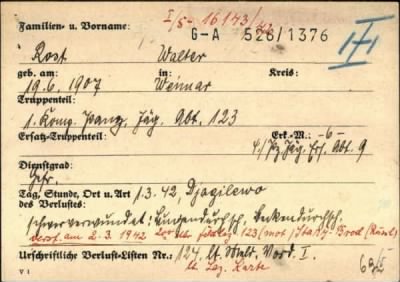 I/5- 16143/42
Familien- u. Vorname: G-A 526/1376
Rost Walter
geb. am: in: Kreis:
19.6.1907 Weimar
Truppenteil:
1. Komp. Panz. Jäg. Abt. 123
Ersatz-Truppenteil: Erk.-M.: -6-
4/Pz. Jäg. Ers. Abt. 9
Dienstgrad:
Gefr.
Tag, Stunde, Ort u. Art 1.3.42, Djagilewo
des Verlustes:
schwerverwundet: Lungendurchsch. Beckendurchsch.
verst. am 2.3.1942 123 (mot)
Urschriftliche Verlust-Listen Nr.: 124, lt. Vord. I.
lt. Laz. Karte
V 1